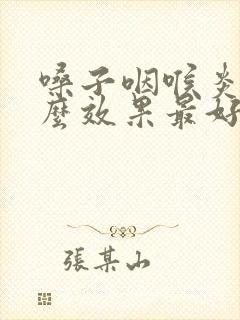 嗓子咽喉炎
麼效果最好
張某山